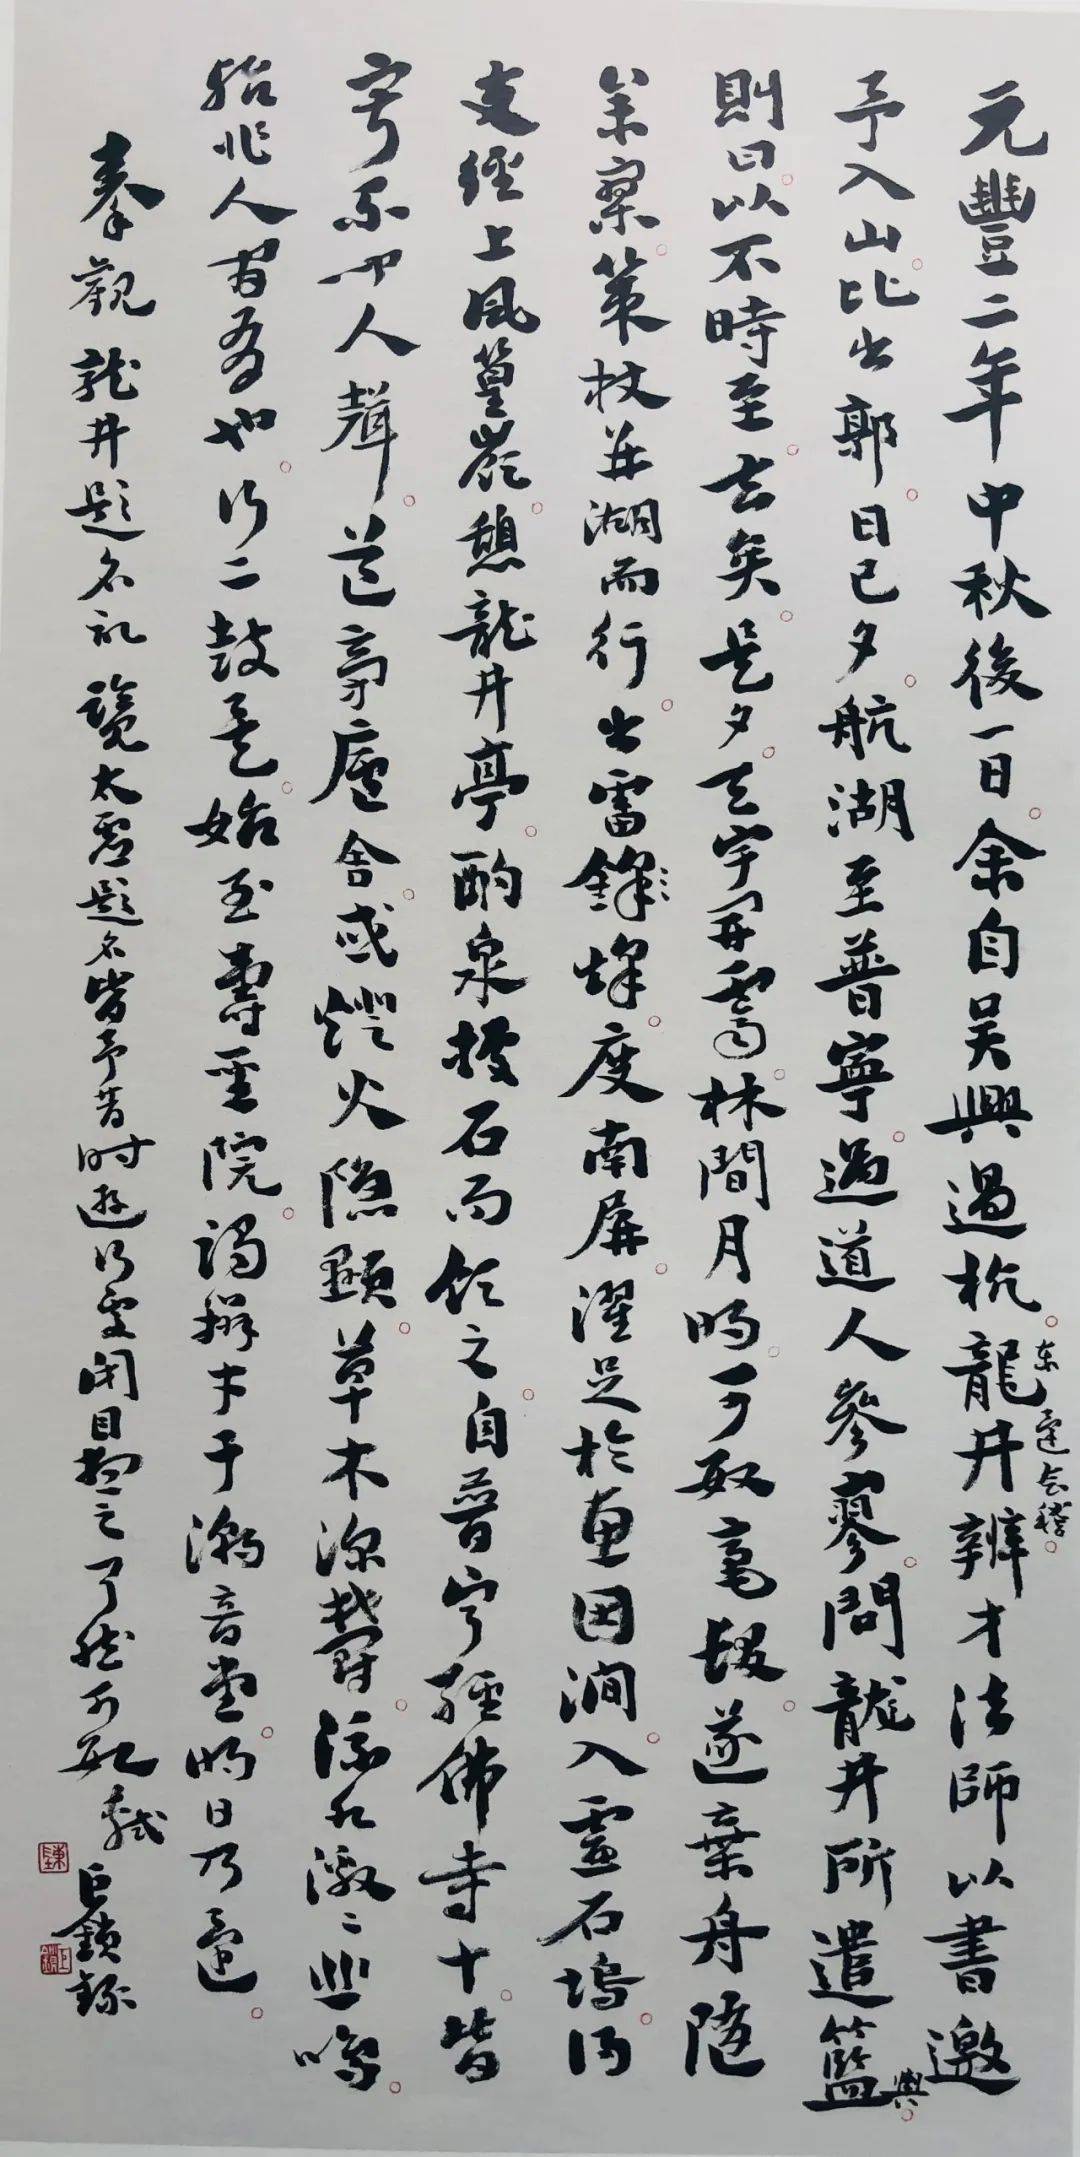 元豐二年中秋後一日余自吳興過杭東還会稽龍井辨才法師以書邀
予入山比出郭日已夕航湖至普寧遇道人參寥問龍井所遣籃輿
則曰以不時至去矣是夕天宇開霽林間月明可數毫髮遂棄舟随
參寥策杖并湖而行出雷鋒峰度南屏濯足於惠因澗入靈石塢得
支徑上風篁嶺憩龍井亭酌泉據石而飲之自普宁經佛寺十皆
寂不聞人聲道旁廬舍或燈火隐顯草木深鬱流水激々悲鳴
殆非人間有也行二鼓矣始至壽聖院謁辯才于潮音堂明日乃還
秦觀龍井題名記 覽太虛題名皆予昔时遊行處閉目想之了然可數軾 巨鎖錄